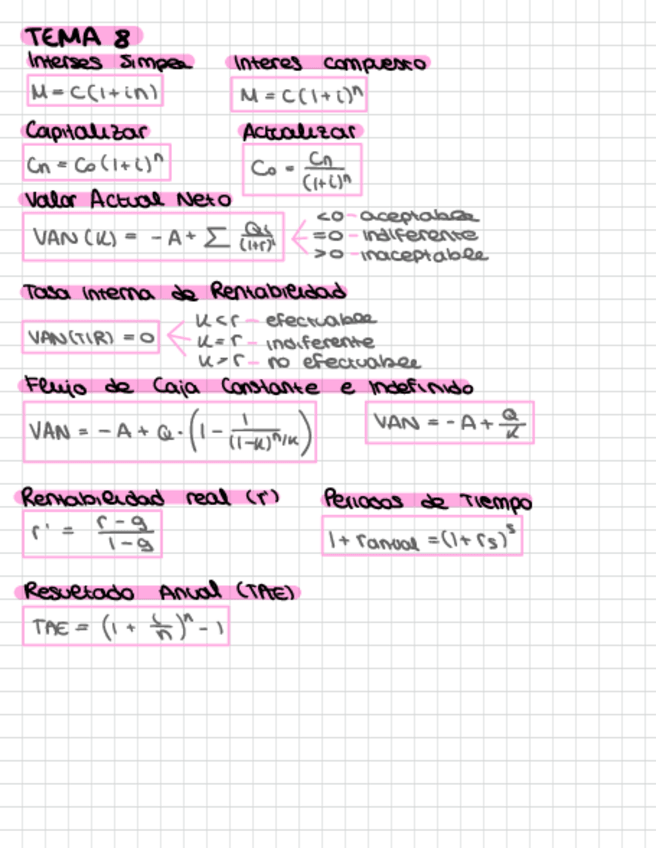 TEMA 8
Interses Simpes Interes compuesto
M = C(1+in) M = C(1+i)^n
Capitalizar Actualizar
Cn = Co(1+i)^n Co = Cn/(1+i)^n
Valor Actual Neto
VAN (K) = -A + Σ Qi/(1+r)^i
<0 - aceptable
=0 - indiferente
>0 - inaceptable
Tasa Interna de Rentabilidad
VAN(TIR) = 0
K < r - efectuable
K = r - indiferente
K > r - no efectuable
Flujo de Caja Constante e Indefinido
VAN = -A + Q · (1 - 1/(1-K)^n/K) VAN = -A + Q/K
Rentabilidad real (r') Periodos de Tiempo
r' = r-g/1-g 1 + ranual = (1 + rs)^s
Resultado Anual (TAE)
TAE = (1 + i/n)^n - 1